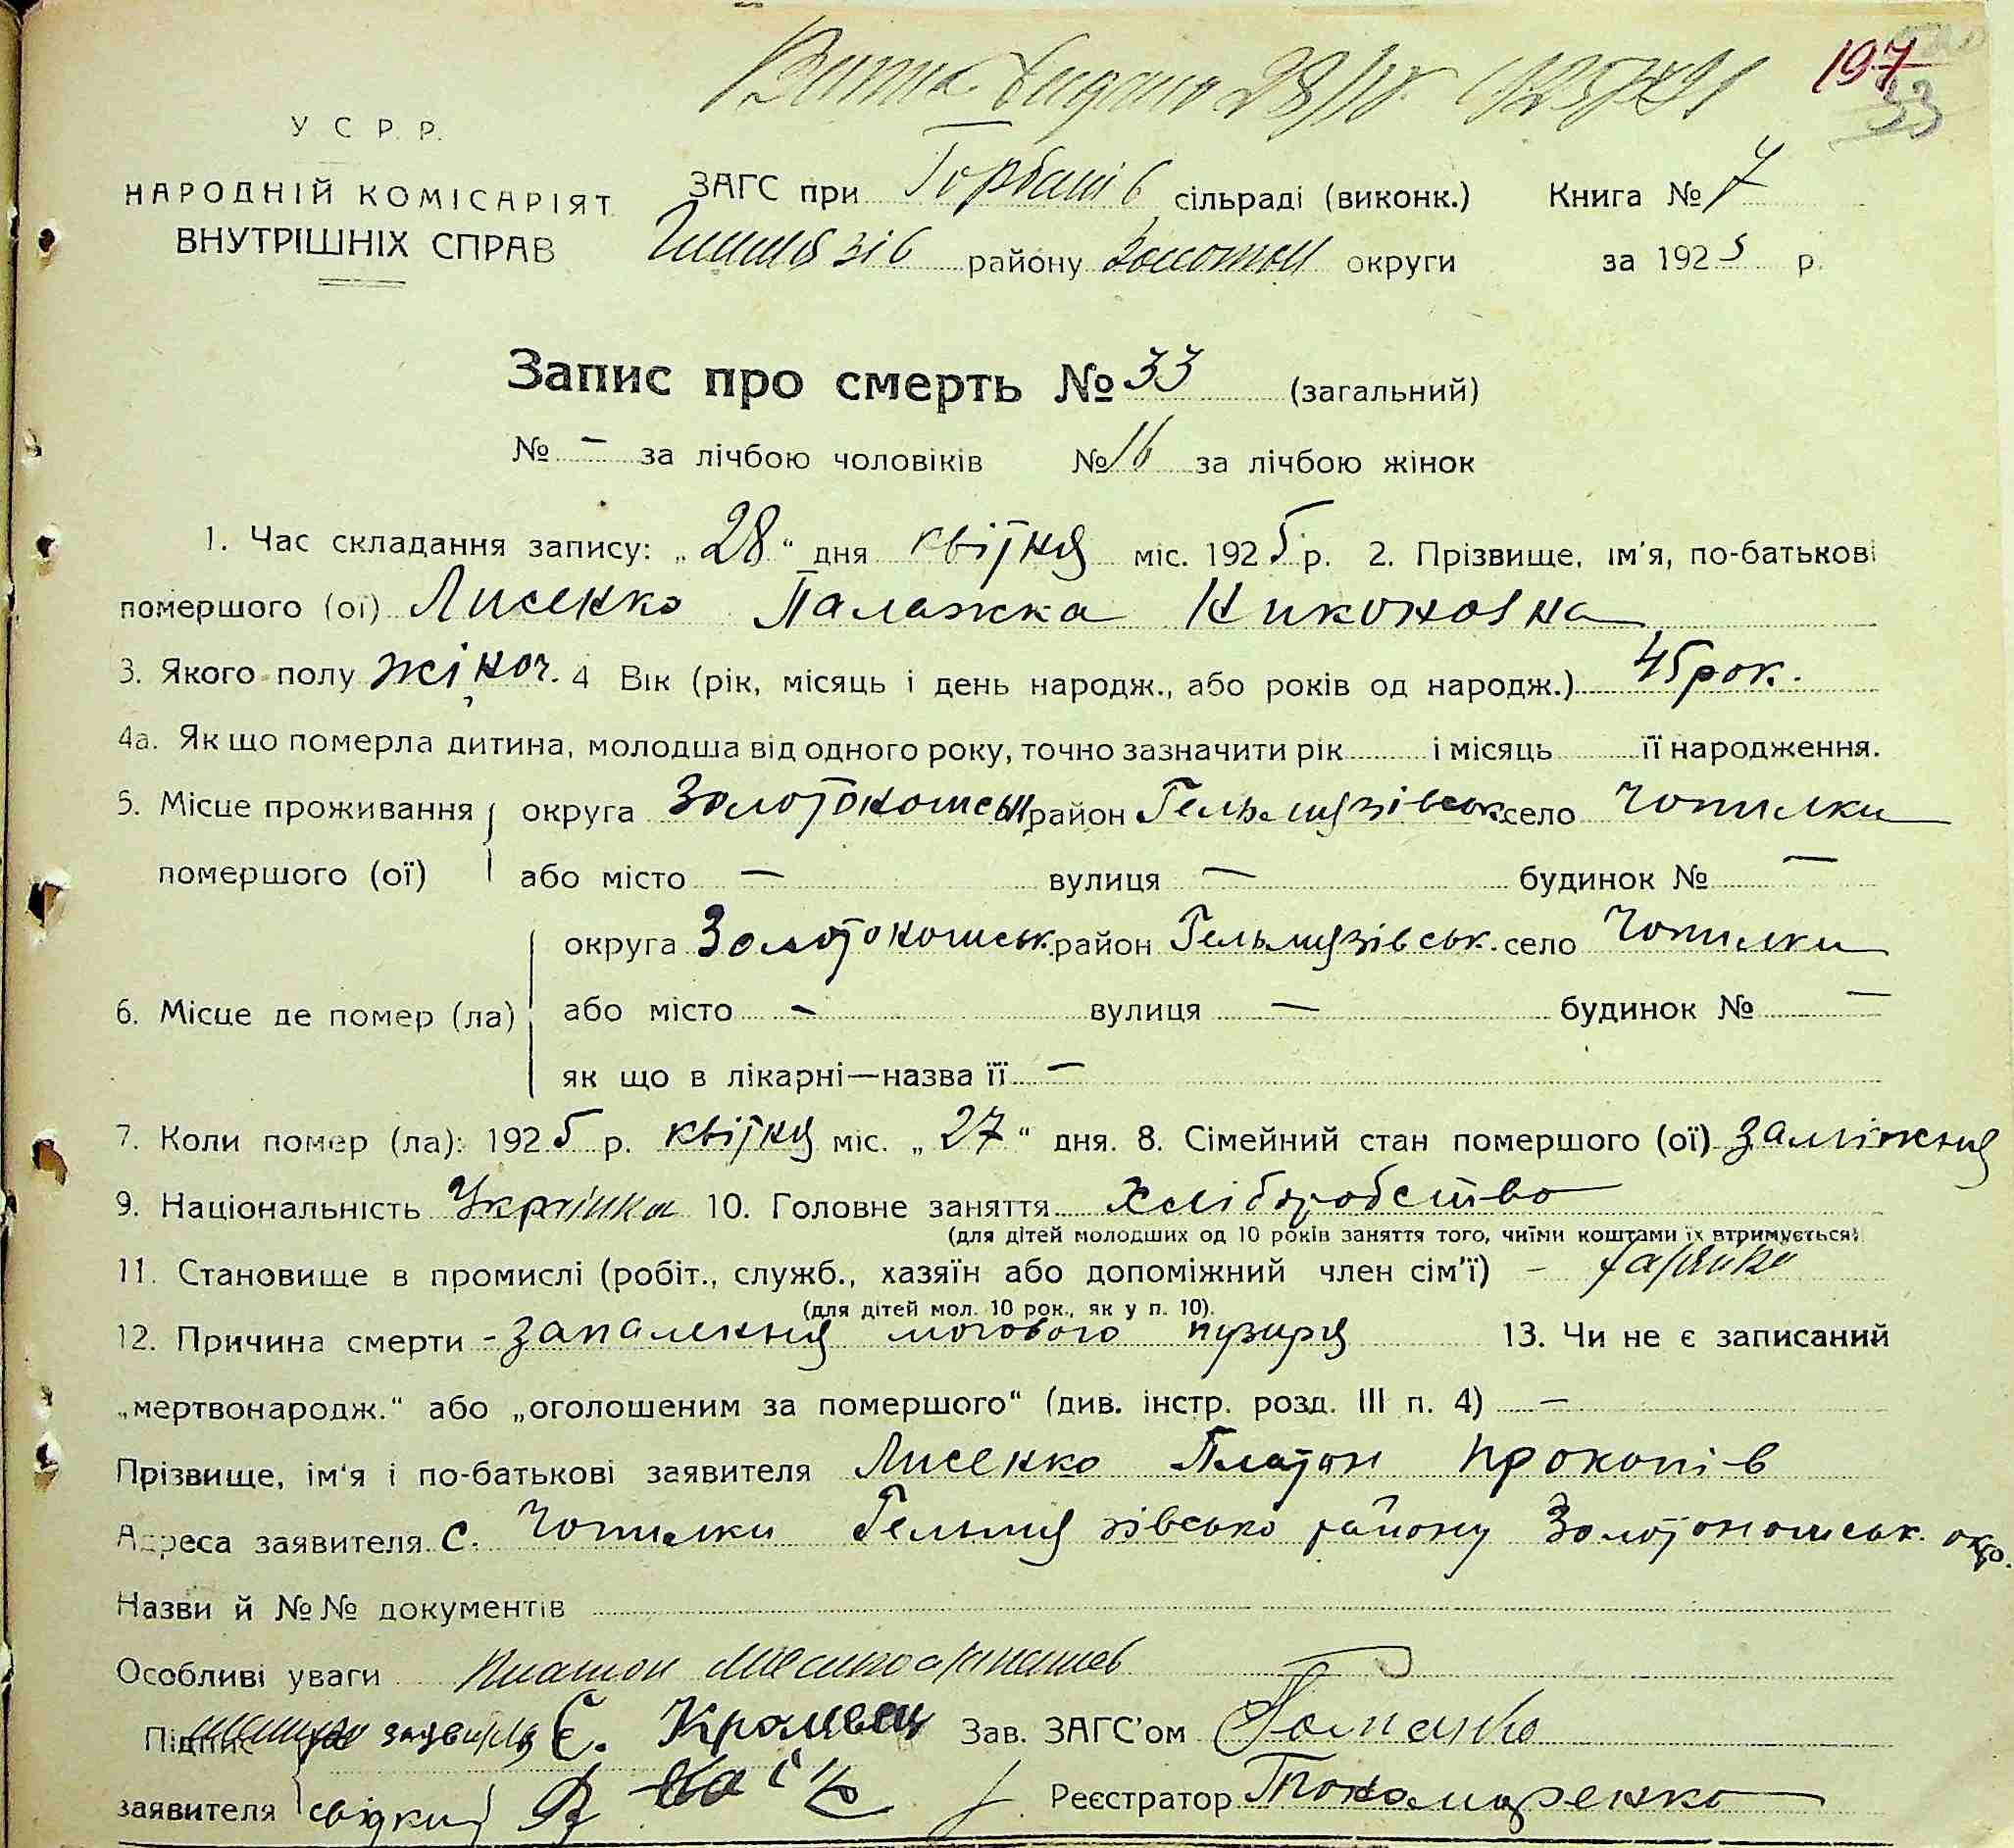 197
33
У С Р. Р.
НАРОДНІЙ КОМІСАРІЯТ
ВНУТРІШНІХ СПРАВ
ЗАГС при Горбані в сільраді (виконк.) Книга № 7
району Золотон округи за 1925 р.
Запис про смерть № 33 (загальний)
№ – за лічбою чоловіків № 16 за лічбою жінок
1. Час складання запису: „28“ дня квітня міс. 1925 р. 2. Прізвище, ім'я, по-батькові
помершого (ої) Лисенко Палажка Никоновна
3. Якого полу жіноч. 4 Вік (рік, місяць і день народж., або років од народж.) 45 рок.
4а. Як що померла дитина, молодша від одного року, точно зазначити рік і місяць її народження.
5. Місце проживання округа Золотоношськ район Гельмязівськ село Чопилки
помершого (ої) або місто — вулиця — будинок № —
округа Золотоношськ. район Гельмязівськ. село Чопилки
6. Місце де помер (ла) або місто – вулиця — будинок № —
як що в лікарні—назва її —
7. Коли помер (ла): 1925 р. квітня міс. „27“ дня. 8. Сімейний стан помершого (ої) заміжня
9. Національність Українка 10. Головне заняття Хліборобство
(для дітей молодших од 10 років заняття того, чиїми коштами їх втримується)
11. Становище в промислі (робіт., служб., хазяїн або допоміжний член сім'ї) –
(для дітей мол. 10 рок., як у п. 10).
12. Причина смерти - запалення мочового пузиря 13. Чи не є записаний
„мертвонародж.“ або „оголошеним за помершого“ (див. інстр. розд. III п. 4) —
Прізвище, ім'я і по-батькові заявителя Лисенко Платон Прокопів
Адреса заявителя с. Чопилки Гельмязівсько району Золотоношськ. окр.
Назви й №№ документів
Особливі уваги Платон
Підпис заявителя Є. Кромвец Зав. ЗАГС'ом
заявителя свідки Реєстратор Пономаренко